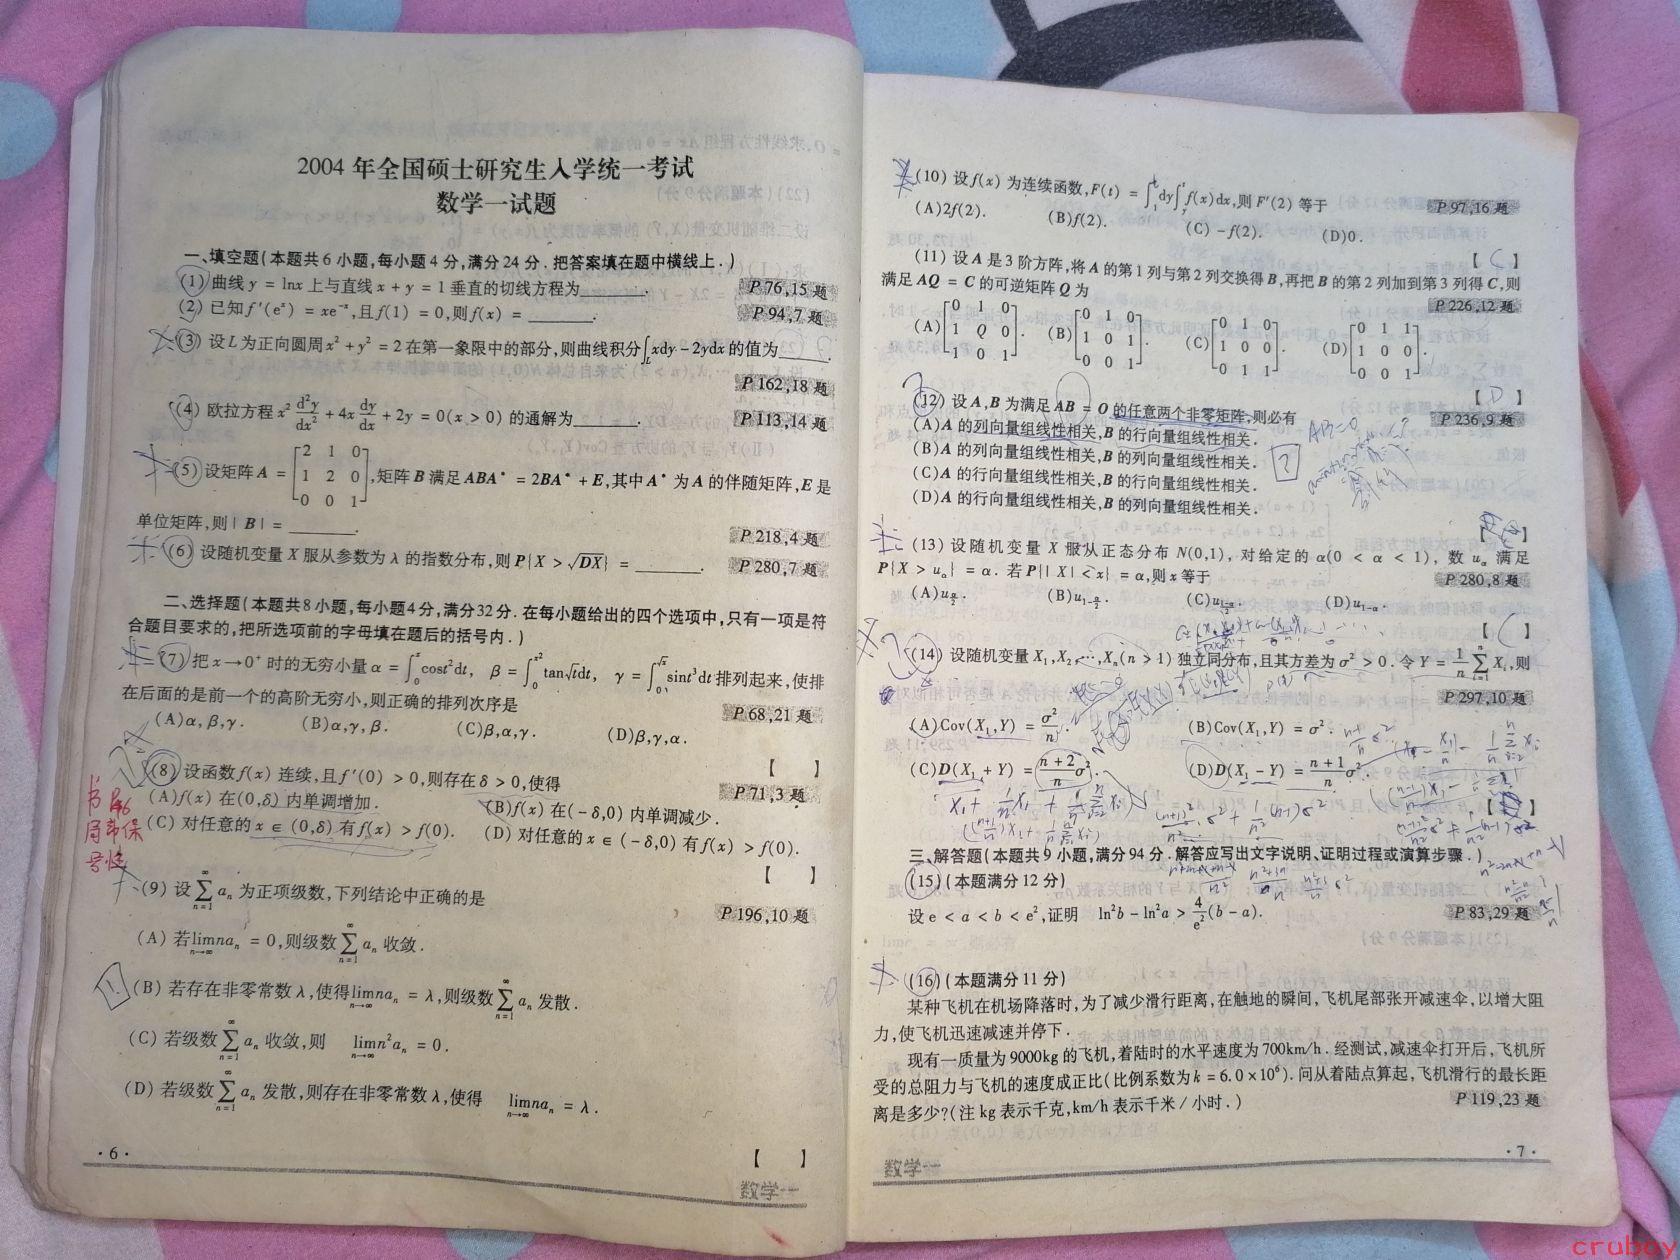 2004 年全国硕士研究生入学统一考试
数学一试题
一、填空题(本题共6小题,每小题4分,满分24分.把答案填在题中横线上.)
(1) 曲线 y = lnx 上与直线 x + y = 1 垂直的切线方程为________.
P 76,15 题
(2) 已知 f′(eˣ) = xe⁻ˣ,且 f(1) = 0,则 f(x) = ________.
P 94,7 题
(3) 设 L 为正向圆周 x² + y² = 2 在第一象限中的部分,则曲线积分∫_L xdy − 2ydx 的值为________.
P 162,18 题
(4) 欧拉方程 x² d²y/dx² + 4x dy/dx + 2y = 0(x > 0) 的通解为________.
P 113,14 题
(5) 设矩阵 A = [2 1 0; 1 2 0; 0 0 1],矩阵 B 满足 ABA* = 2BA* + E,其中 A* 为 A 的伴随矩阵,E 是
单位矩阵,则 | B | = ________.
P 218,4 题
(6) 设随机变量 X 服从参数为 λ 的指数分布,则 P{X > √DX} = ________.
P 280,7 题
二、选择题(本题共8小题,每小题4分,满分32分.在每小题给出的四个选项中,只有一项是符
合题目要求的,把所选项前的字母填在题后的括号内.)
(7) 把 x→0⁺ 时的无穷小量 α = ∫₀ˣ cost²dt, β = ∫₀^{x²} tan√t dt, γ = ∫₀^{√x} sint³dt 排列起来,使排
在后面的是前一个的高阶无穷小,则正确的排列次序是
P 68,21 题
(A)α,β,γ. (B)α,γ,β. (C)β,α,γ. (D)β,γ,α.
【 】
(8) 设函数 f(x) 连续,且 f′(0) > 0,则存在 δ > 0,使得
P 71,3 题
(A)f(x) 在(0,δ) 内单调增加. (B)f(x) 在(−δ,0) 内单调减少.
(C) 对任意的 x ∈ (0,δ) 有 f(x) > f(0). (D) 对任意的 x ∈ (−δ,0) 有 f(x) > f(0).
【 】
(9) 设 ∑_{n=1}^{∞} aₙ 为正项级数,下列结论中正确的是
P 196,10 题
(A) 若 lim_{n→∞} naₙ = 0,则级数 ∑_{n=1}^{∞} aₙ 收敛.
(B) 若存在非零常数 λ,使得 lim_{n→∞} naₙ = λ,则级数 ∑_{n=1}^{∞} aₙ 发散.
(C) 若级数 ∑_{n=1}^{∞} aₙ 收敛,则 lim_{n→∞} n²aₙ = 0.
(D) 若级数 ∑_{n=1}^{∞} aₙ 发散,则存在非零常数 λ,使得 lim_{n→∞} naₙ = λ.
【 】
· 6 ·
数学一
(10) 设 f(x) 为连续函数,F(t) = ∫₁ᵗ dy ∫_yᵗ f(x)dx,则 F′(2) 等于
P 97,16 题
(A)2f(2). (B)f(2). (C) −f(2). (D)0.
【 C 】
(11) 设 A 是 3 阶方阵,将 A 的第 1 列与第 2 列交换得 B,再把 B 的第 2 列加到第 3 列得 C,则
满足 AQ = C 的可逆矩阵 Q 为
P 226,12 题
(A)[0 1 0; 1 Q 0; 1 0 1]. (B)[0 1 0; 1 0 1; 0 0 1]. (C)[0 1 0; 1 0 0; 0 1 1]. (D)[0 1 1; 1 0 0; 0 0 1].
【 D 】
(12) 设 A,B 为满足 AB = O 的任意两个非零矩阵,则必有
P 236,9 题
(A)A 的列向量组线性相关,B 的行向量组线性相关.
AB=0
(B)A 的列向量组线性相关,B 的列向量组线性相关.
(C)A 的行向量组线性相关,B 的行向量组线性相关.
(D)A 的行向量组线性相关,B 的列向量组线性相关.
(13) 设随机变量 X 服从正态分布 N(0,1), 对给定的 α(0 < α < 1), 数 u_α 满足
P{X > u_α} = α. 若 P{| X | < x} = α,则 x 等于
P 280,8 题
(A)u_{α/2}. (B)u_{1−α/2}. (C)u_{(1−α)/2}. (D)u_{1−α}.
【 C 】
(14) 设随机变量 X₁,X₂,⋯,Xₙ(n > 1) 独立同分布,且其方差为 σ² > 0. 令 Y = 1/n ∑_{i=1}^{n} Xᵢ,则
P 297,10 题
(A)Cov(X₁,Y) = σ²/n. (B)Cov(X₁,Y) = σ².
(C)D(X₁ + Y) = (n + 2)/n σ². (D)D(X₁ − Y) = (n + 1)/n σ².
三、解答题(本题共9小题,满分94分.解答应写出文字说明、证明过程或演算步骤.)
(15)(本题满分 12 分)
设 e < a < b < e²,证明 ln²b − ln²a > 4/e² (b − a).
P 83,29 题
(16)(本题满分 11 分)
某种飞机在机场降落时,为了减少滑行距离,在触地的瞬间,飞机尾部张开减速伞,以增大阻
力,使飞机迅速减速并停下.
现有一质量为9000kg 的飞机,着陆时的水平速度为700km/h.经测试,减速伞打开后,飞机所
受的总阻力与飞机的速度成正比(比例系数为 k = 6.0 × 10⁶).问从着陆点算起,飞机滑行的最长距
离是多少?(注 kg 表示千克,km/h 表示千米/小时.)
P 119,23 题
· 7 ·
数学一
cruboy